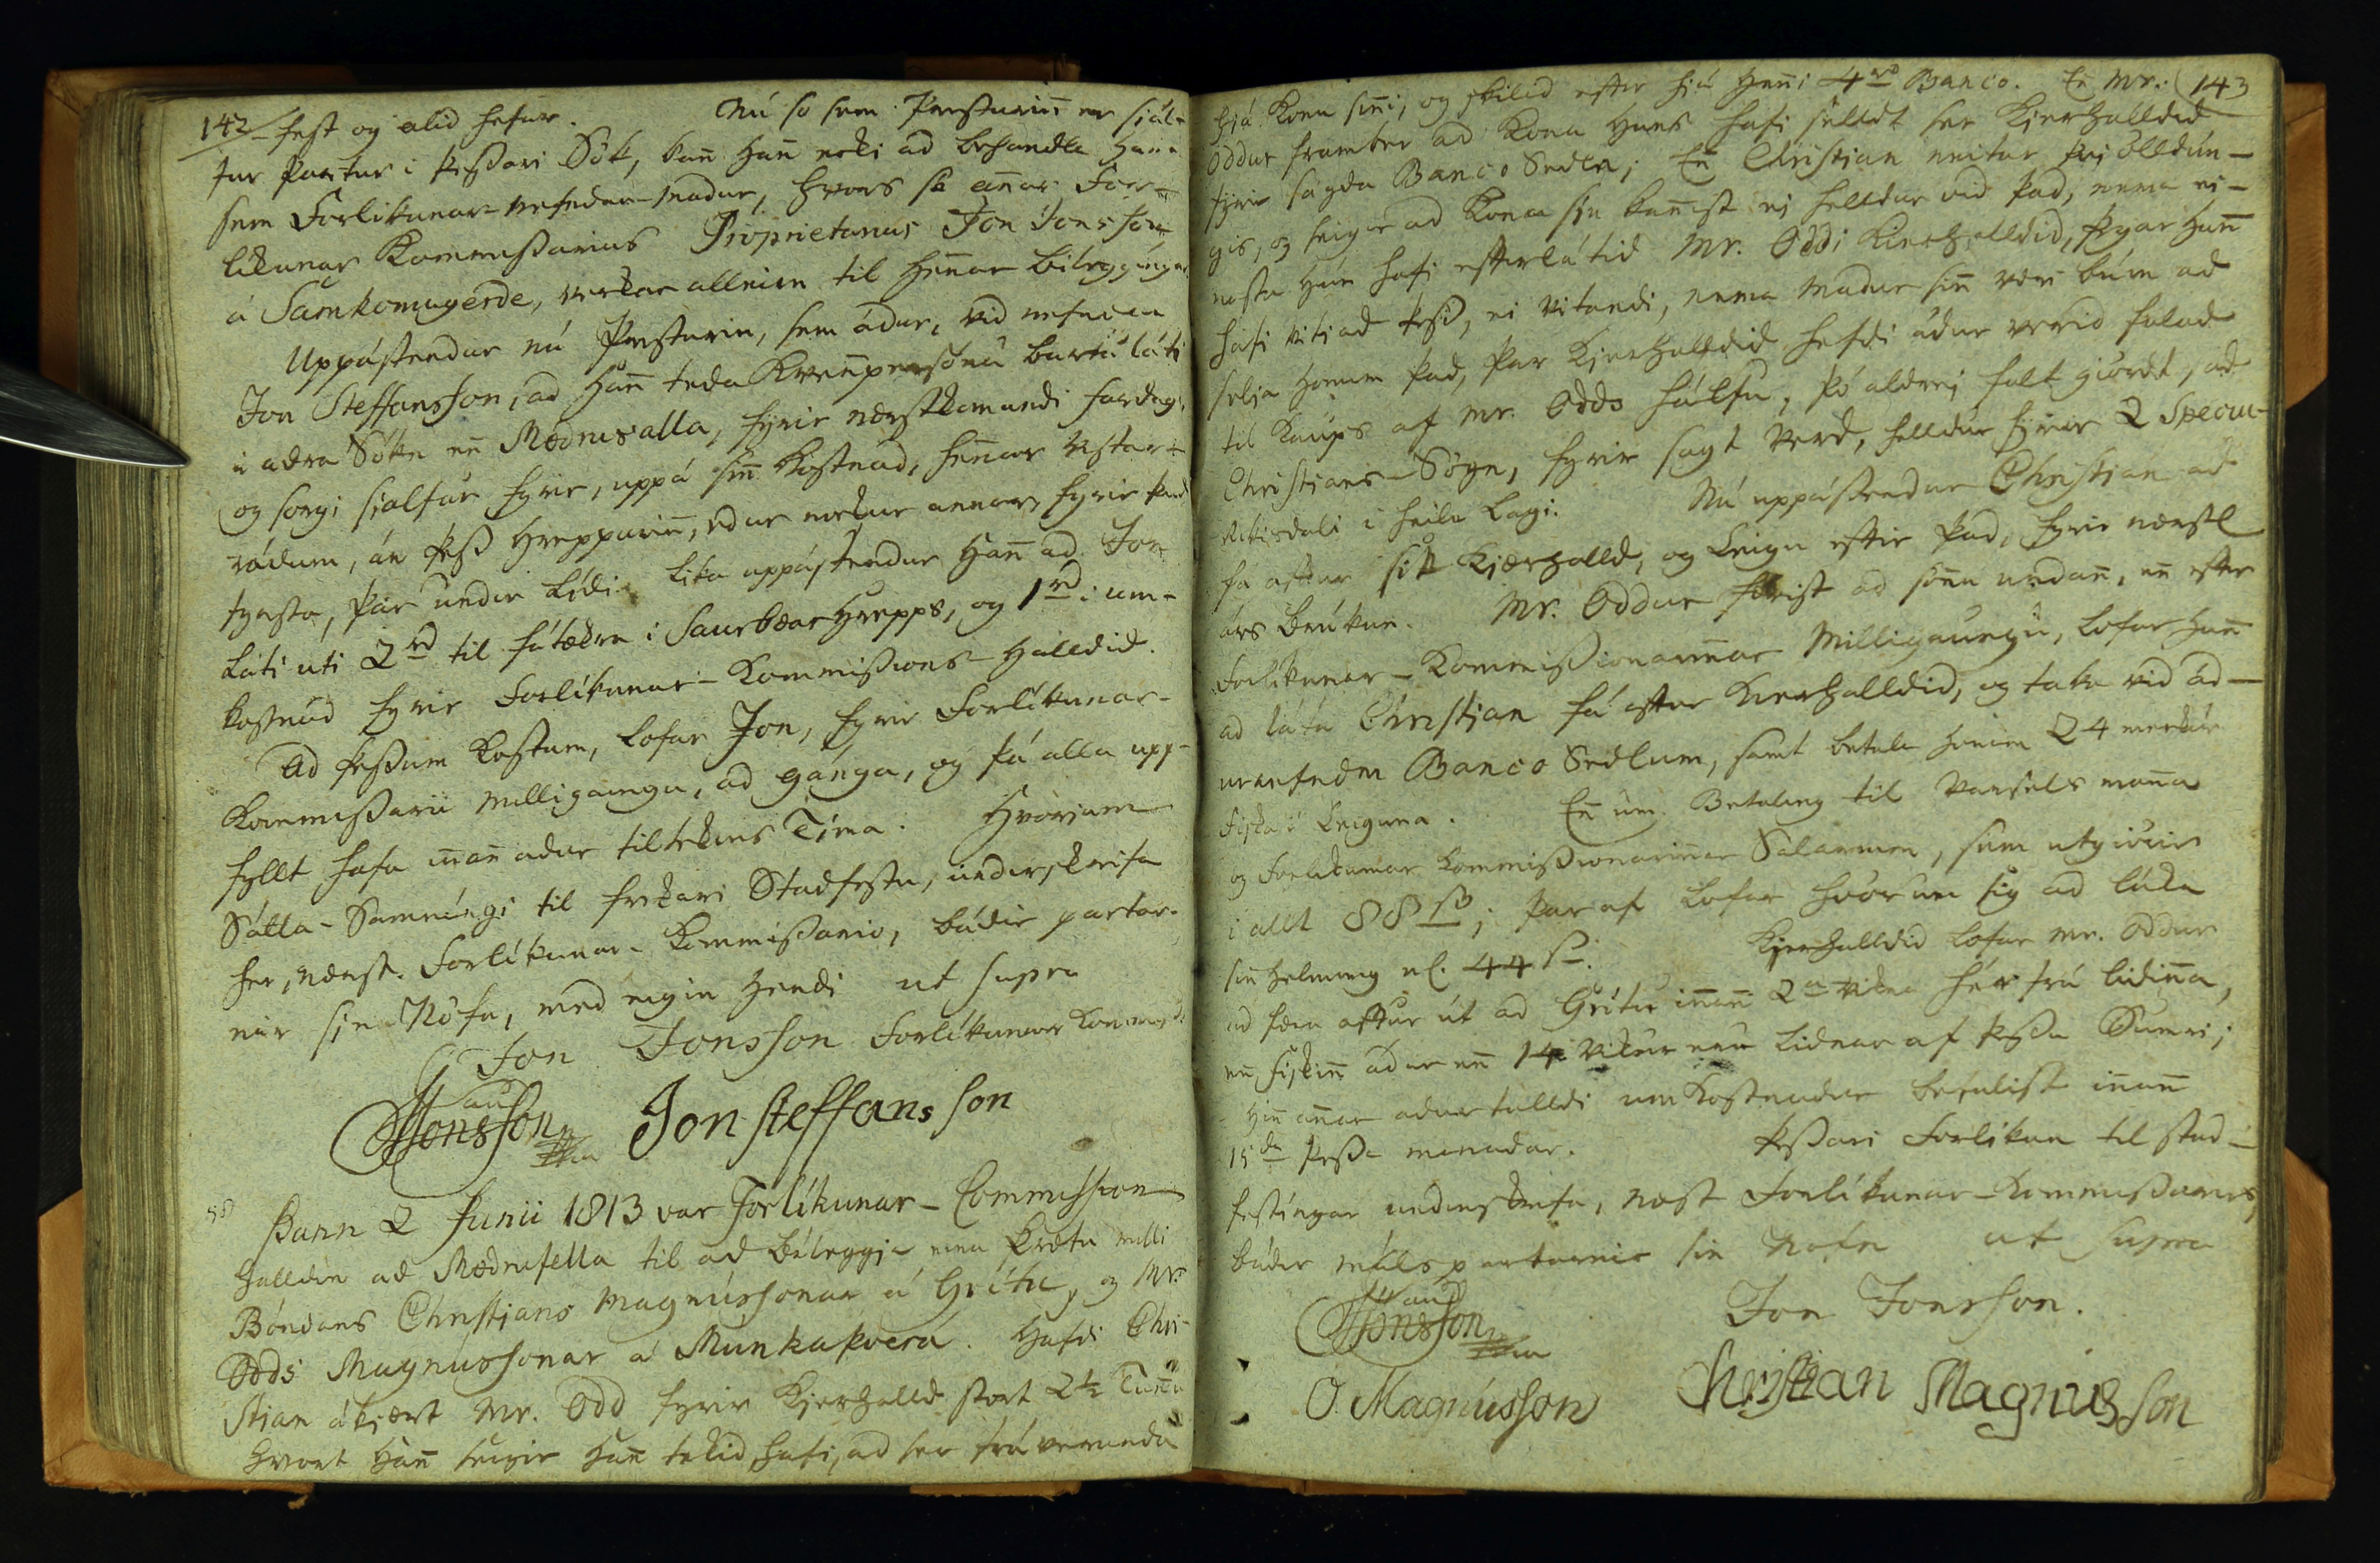 142 fest og alid hefur. Nú so sem Presturiñ er siál-
fur Partur i þeßari Sök, kañ hañ ecki ad behandla hana
sem Forlikunar-nefndar-madur, hvors so añar Foor-
likunar Kommißarius Proprietarius Jon Jonsson
á Samkomugerde, verkar alleirn til heñar bileggingar
Uppástendur nú Presturin, sem ádur, vid nefndan
Jon Steffansson, ad hañ téda Kveñpersónu burtu láti
i adra Sókn eñ Mödruvalla, fyrir nærstkomandi fardaga,
og sorgi sialfur fyrir, uppá siñ Kostnad, heñar vistar-
rádum, án þeß Hreppuriñ, edur nockur annar, fyrir það
hrasta, þar under lídi. Lika uppástendur hañ ad Jon
láti uti 2 rd til fátækra i Saurbæar Hrepps, og 1 rd i um-
kostnad fyrir Forlíkunar-Kommißions-Halldid.
Ad þeßum Kostum, lofar Jon, fyrir Forlíkunar-
Kommißarii milligaungu, ad gánga, og þá alla upp-
fyllt hafa innañ adur tiltekins Tíma. Hvörjum
Sátta-Samníngi til frekari Stadfestu, underskrifa
her, nærst. Forlíkunar-Kommißario, bádir partar-
nir sin Nöfn, med eigin Hendi ut supra
Jon Jonsson Forlíkunar Kommiss
Jonsson Jon Steffans son
58 Þann 2 Junii 1813 var Forlíkunar-Commission
halldin ad Mödrufelle til ad bileggja eina Þrætu milli
Bóndans Christjans Magnússonar á Grítu, og Mr.
Odds Magnussonar á Munkaþverá. Hafdi Chri-
stjan ákiært Mr. Odd fyrir Kjerhalld stort 2½ Tuñu
hvort hañ seigir hañ tekid hafi, ad ser fráverandi
143
hjá Konu siñi, og skilid eftir hjá heñi 4 rd Banco. En Mr.
Oddur framber ad Kona Hans hafi selldt ser Kjerhalldid
fyrir sagda Banco Sedla; En Christjan neitar því ölldún-
gis, og seigir ad Kona sin kañist ei helldur vid þad, nema ei-
nasta hún hafi eftirlátid Mr. Oddi Kierhalldid, þegar hañ
hafi vitjad þeß, ei vitandi, nema Madur siñ væri búin ad
selja honum þad, þar Kjerhalldid hefdi ádur verid falad
til Kaups af Mr. Odds hálfu, þó aldrej falt giördt, ad
Christjans-Sögn, fyrir sagt Verd, helldur fyrir 2 Speciu
Rikisdali i heilu Lagi. Nú uppástendur Christján ad
fá aftur sitt Kjærhalld, og Leigu eftir þad, fyrir nærstl
árs Brúkun. Mr. Oddur þikist ad sönnu undañ, en eftir
Forlikunar-Kommißionariñar Milligaungu, lofar hañ
ad láta Christjan fá aftur Kierhalldid, og taka vid ád-
urnefndm Banco Sedlum, samt betala honum 24 merkur
Fiska i Leiguna. En um Betaling til Varsels maña
og Forlikunar Kommißionariñar Salarium, sem utgiörir
i allt 88 ß; þar af lofar hvörum sig ad lúka
siñ helming nl. 44 ß. Kjerhalldid lofar Mr. Oddur
ad færa aftur út ad Grítu iñañ 2a Vikna hér frá lidiña,
eñ Fiskiñ ádur eñ 14 Vikur eru lidnar af þeßu Sumri;
Hiñ añar adurtalldi um Kostnadur betalist iñañ
15da þeßa manadar. Þeßari Forlíkun til stad-
festíngar underskrifa, næst Forlíkunar-Kommißarius,
bádir málspartarnir sin Nöfn ut supra
Jonsson Jon Jonsson.
O. Magnússon Christian Magnus son